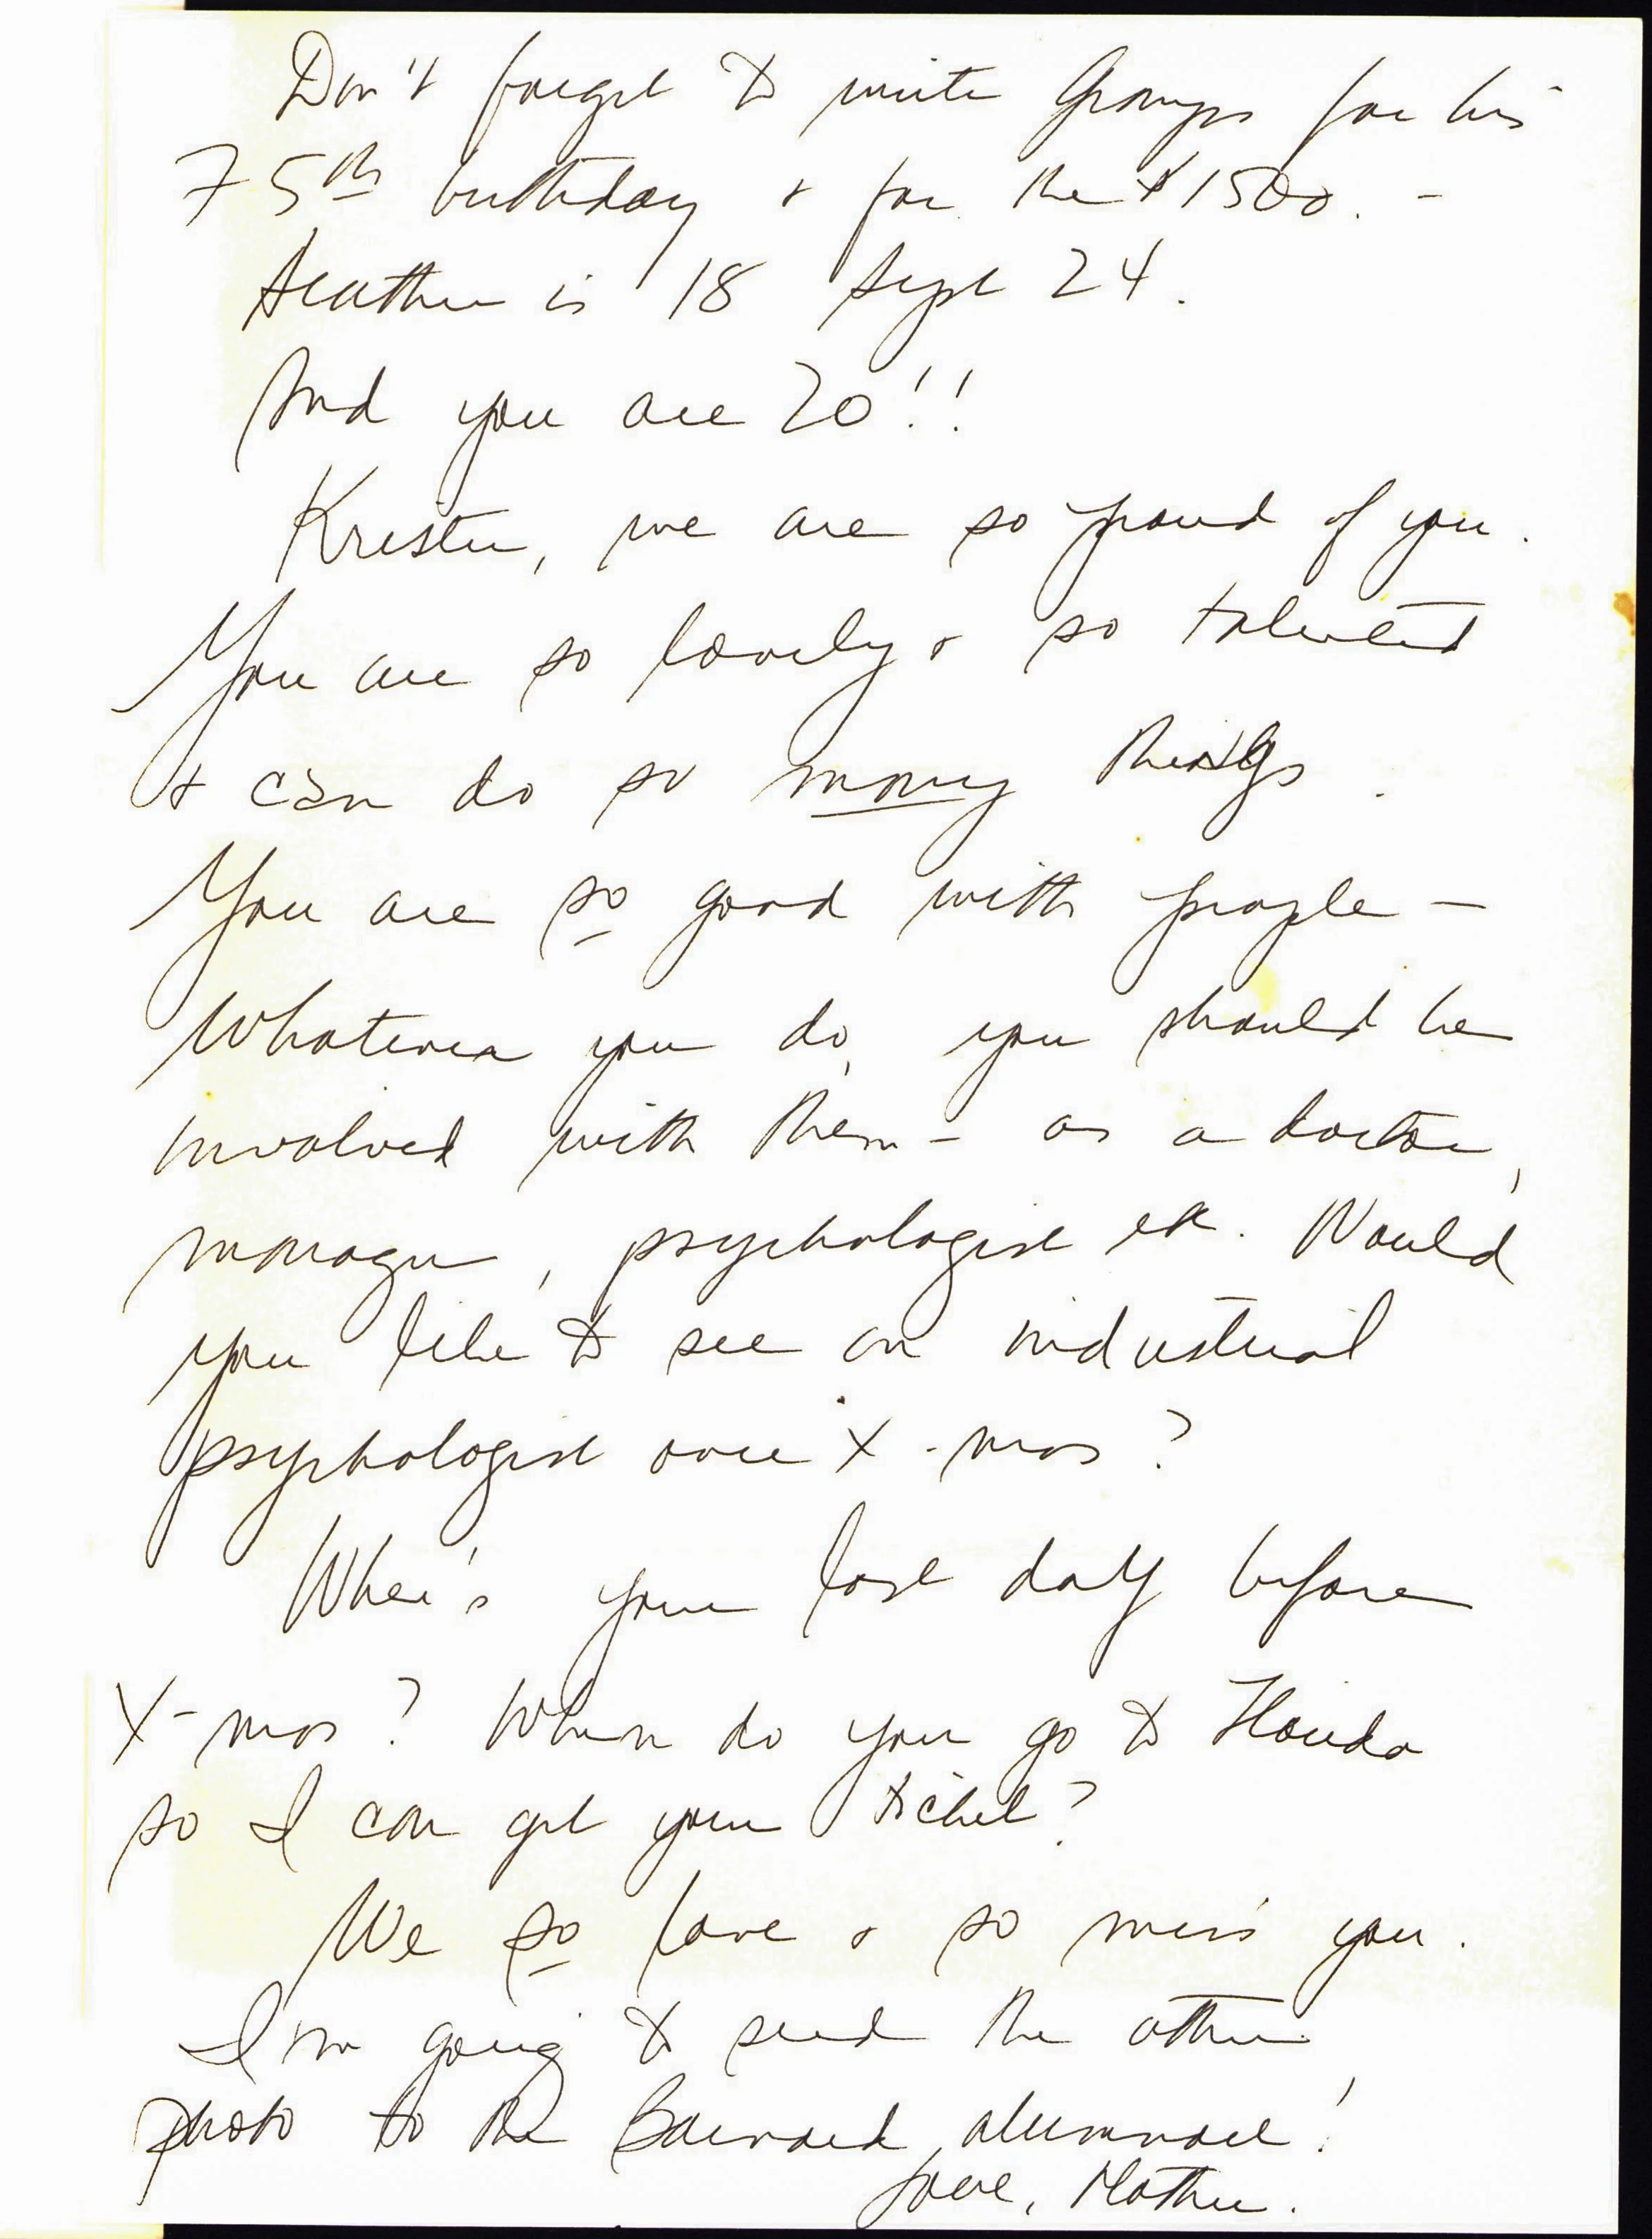 Don't forget to write Gramps for his
75th birthday & for the $1500. -
Heather is 18 Sept 24.
And you are 20!!
Kristen, we are so proud of you.
You are so lovely & so talented
& can do so many things.
You are so good with people -
Whatever you do, you should be
involved with them - as a doctor,
manager, psychologist etc. Would
you like to see an industrial
psychologist over X-mas?
When's your last day before
X-mas? When do you go to Florida
so I can get your ticket?
We so love & so miss you.
I'm going to send the other
photo to the Barnard alumnae!
Love, Mother.